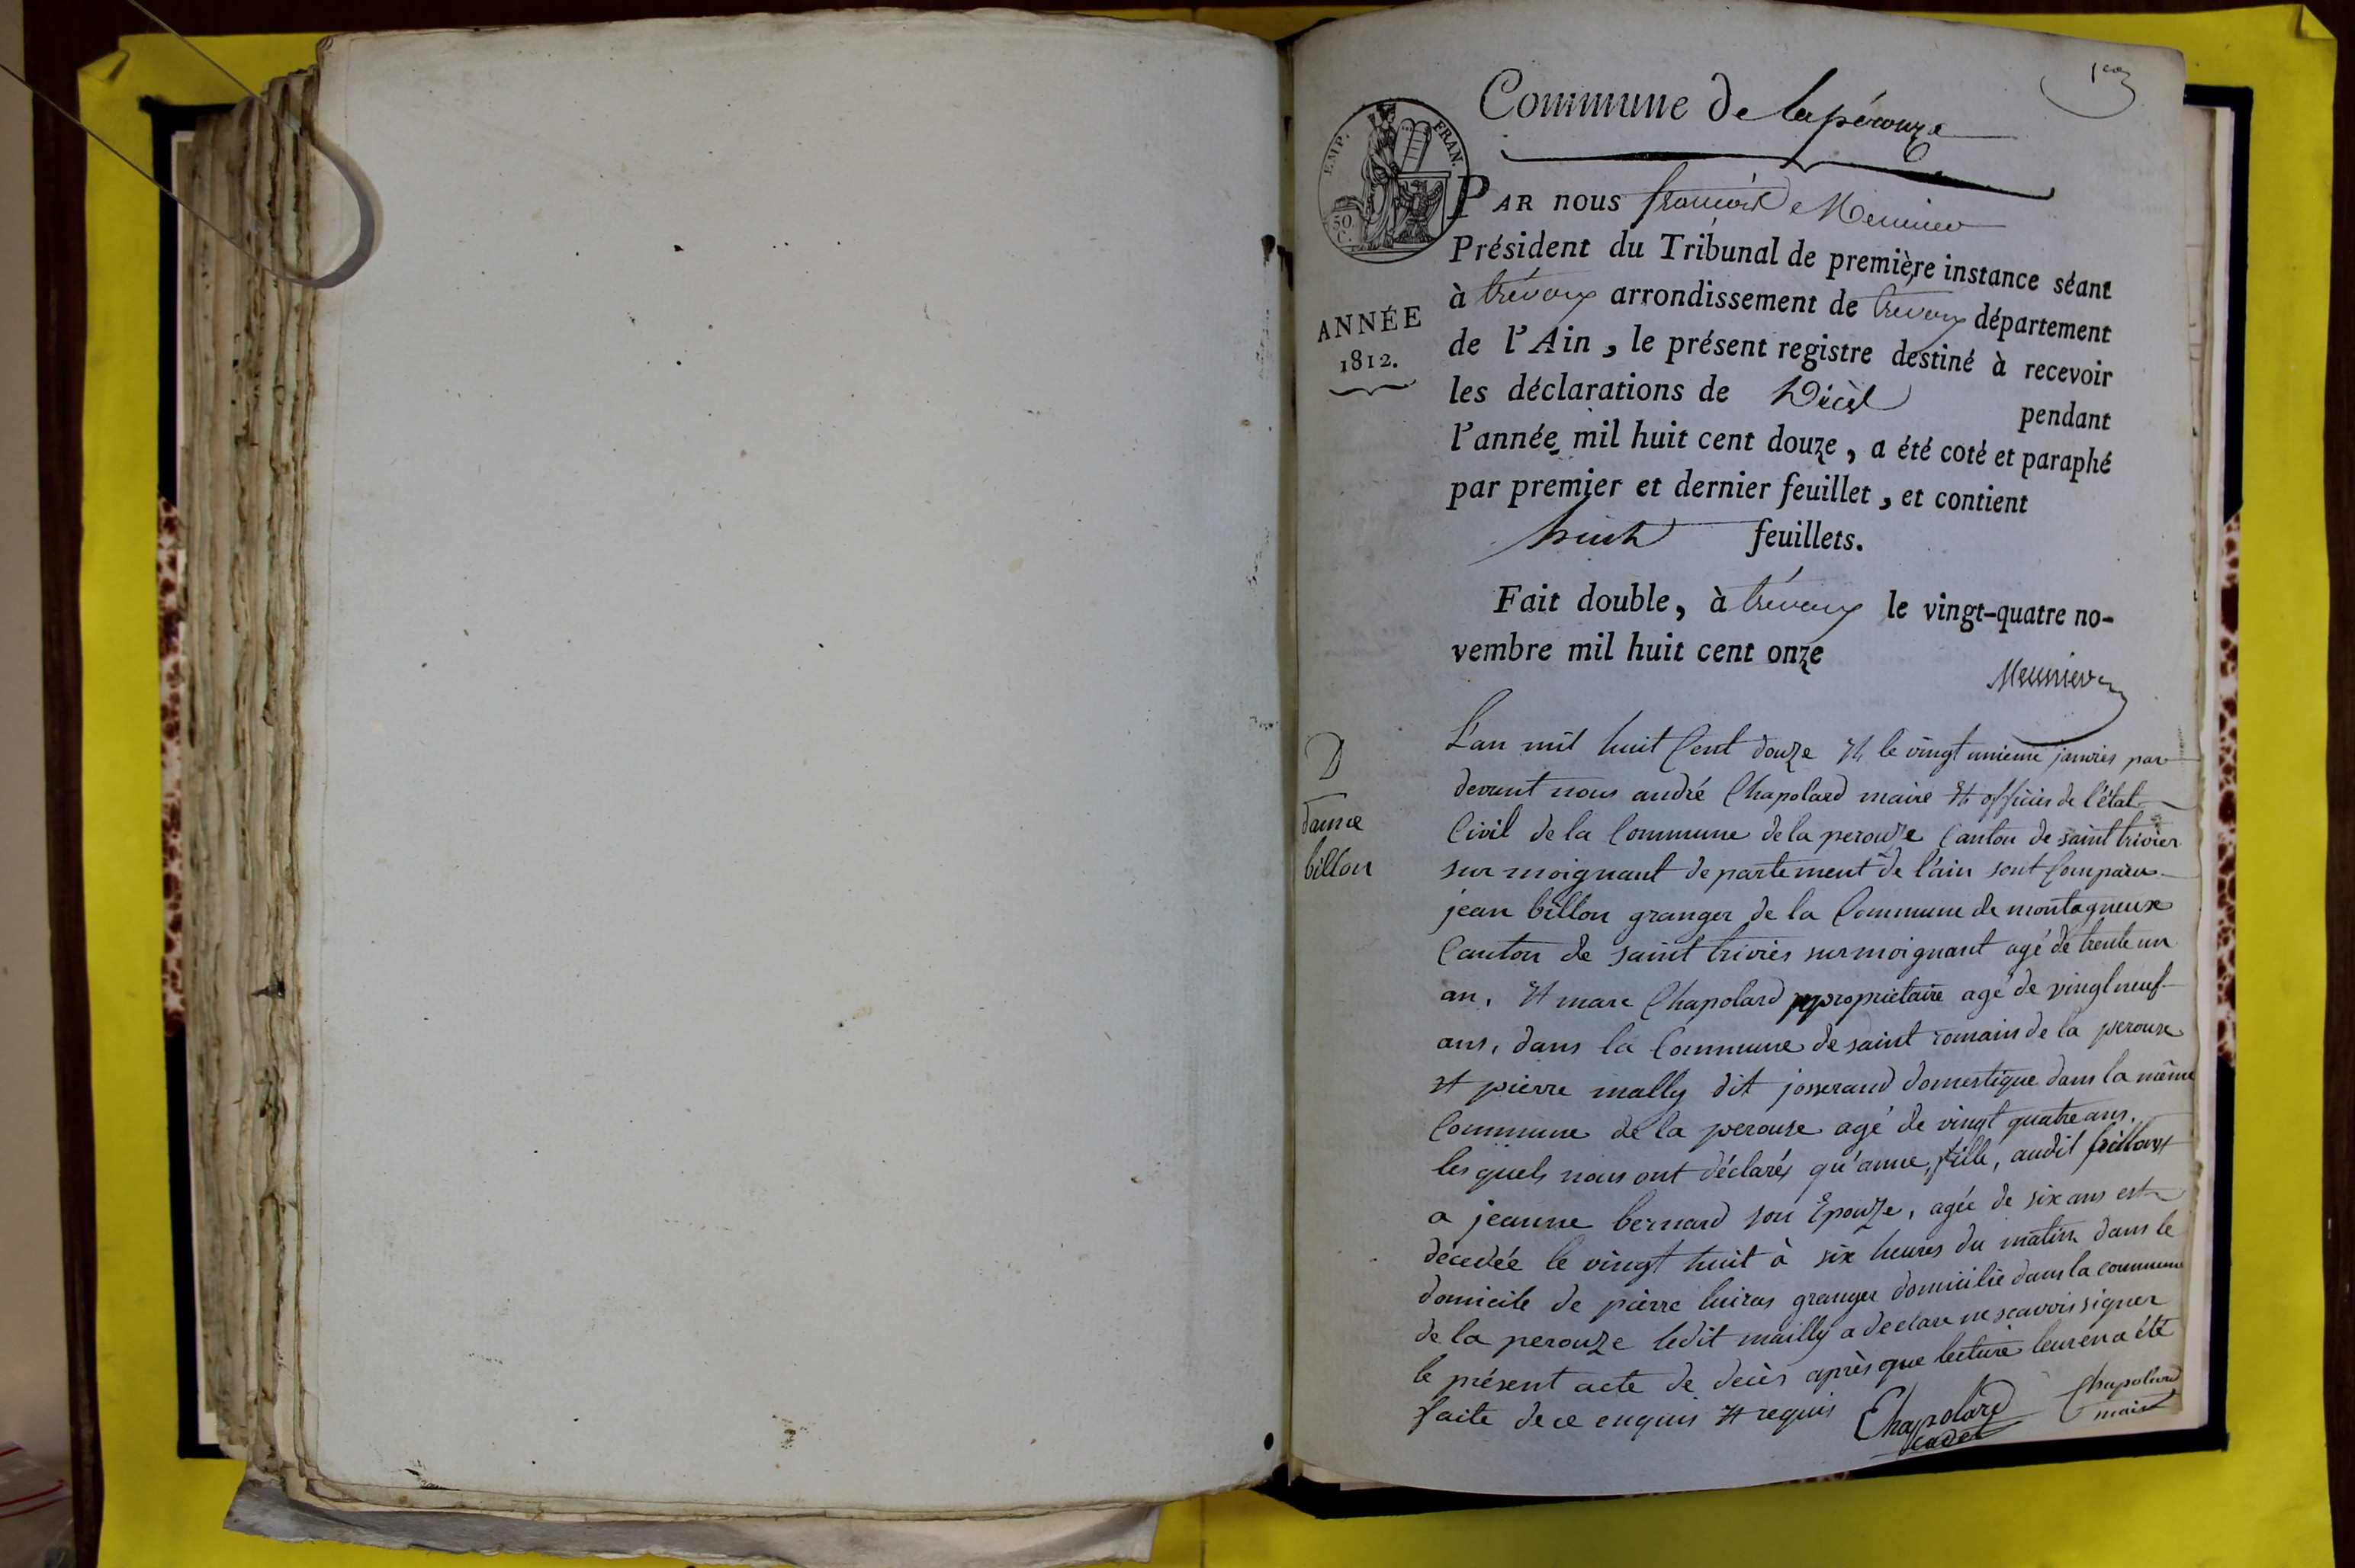 1er
Commune de lapérouze
EMP. FRAN.
50 C.
PAR nous françois Meunier
Président du Tribunal de première instance séant
à trévoux arrondissement de trévoux département
ANNÉE
1812.
de l'Ain, le présent registre destiné à recevoir
les déclarations de Décès pendant
l'année mil huit cent douze, a été coté et paraphé
par premier et dernier feuillet, et contient
huit feuillets.
Fait double, à trévoux le vingt-quatre no-
vembre mil huit cent onze
Meunier
D
danne
billon
L'an mil huit Cent douze Et le vingt unieme janvier par
devant nous andré Chapolard maire Et officier de l'état
Civil de la Commune de la perouze Canton de saint trivier
sur moignant departement de l'ain sont Comparus
jean billon granger de la Commune de montagneux
Canton de saint trivier sur moignant agé de trente un
an, Et marc Chapolard propriétaire agé de vingt neuf
ans, dans la Commune de saint romain de la perouse
Et pierre mally dit josserand domestique dans la même
Commune de la perouse agé de vingt quatre ans,
les quels nous ont déclarés qu'anne, fille, audit billon et
a jeanne bernard son Epouze, agée de six ans est
décedée le vingt huit à six heures du matin dans le
domicile de pierre granger domicilié dans la commune
de la perouze ledit mailly a declare ne scavoir signer
le présent acte de decès après que lecture leur en a été
faite de ce enquis Et requis
Chapolard
cadet
Chapolard
maire